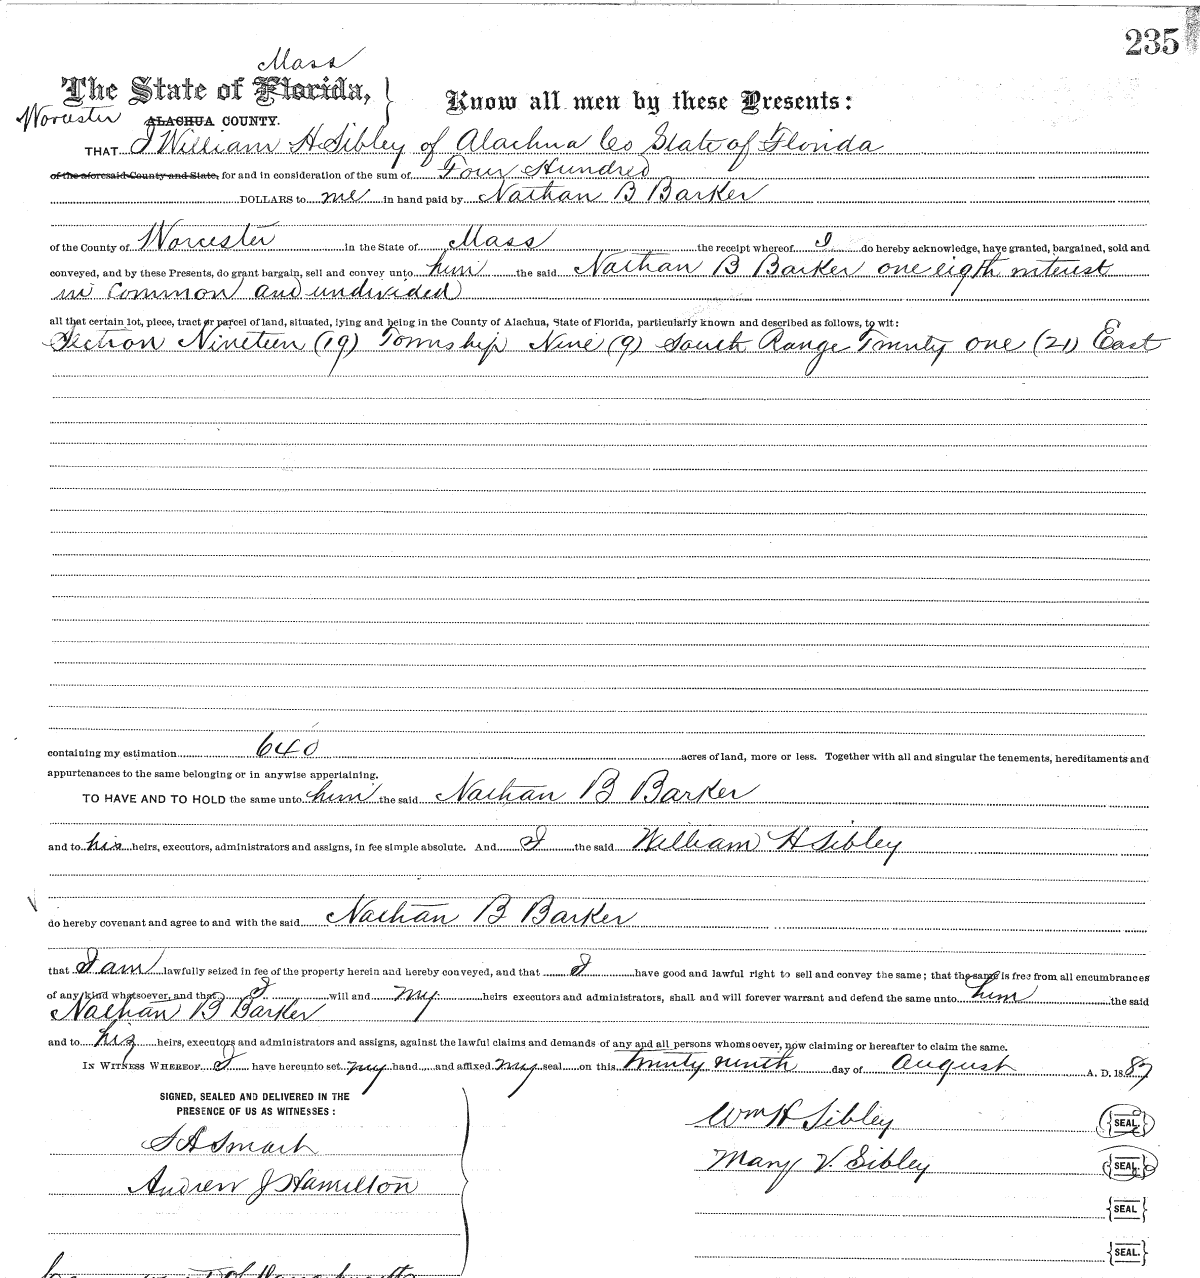 235
Mass
The State of Florida,
Know all men by these Presents:
Worcester ALACHUA COUNTY.
THAT I William H Sibley of Alachua Co State of Florida
of the aforesaid County and State, for and in consideration of the sum of Four Hundred
DOLLARS to me in hand paid by Nathan B Barker
of the County of Worcester in the State of Mass the receipt whereof I do hereby acknowledge, have granted, bargained, sold and
conveyed, and by these Presents, do grant bargain, sell and convey unto him the said Nathan B Barker one eigth interest
in common and undivided
all that certain lot, piece, tract or parcel of land, situated, lying and being in the County of Alachua, State of Florida, particularly known and described as follows, to wit:
Section Nineteen (19) Township Nine (9) South Range Twenty one (21) East
containing my estimation 640 acres of land, more or less. Together with all and singular the tenements, hereditaments and
appurtenances to the same belonging or in anywise appertaining.
TO HAVE AND TO HOLD the same unto him the said Nathan B Barker
and to his heirs, executors, administrators and assigns, in fee simple absolute. And I the said William H Sibley
do hereby covenant and agree to and with the said Nathan B Barker
that I am lawfully seized in fee of the property herein and hereby conveyed, and that I have good and lawful right to sell and convey the same; that the same is free from all encumbrances
of any kind whatsoever, and that I will and my heirs executors and administrators, shall and will forever warrant and defend the same unto him the said
Nathan B Barker
and to his heirs, executors and administrators and assigns, against the lawful claims and demands of any and all persons whomsoever, now claiming or hereafter to claim the same.
IN WITNESS WHEREOF I have hereunto set my hand and affixed my seal on this twenty ninth day of August A. D. 1887
SIGNED, SEALED AND DELIVERED IN THE
PRESENCE OF US AS WITNESSES:
Wm H Sibley {SEAL.}
S A Smart
Mary V. Sibley {SEAL}
Andrew J Hamilton
{SEAL}
{SEAL.}